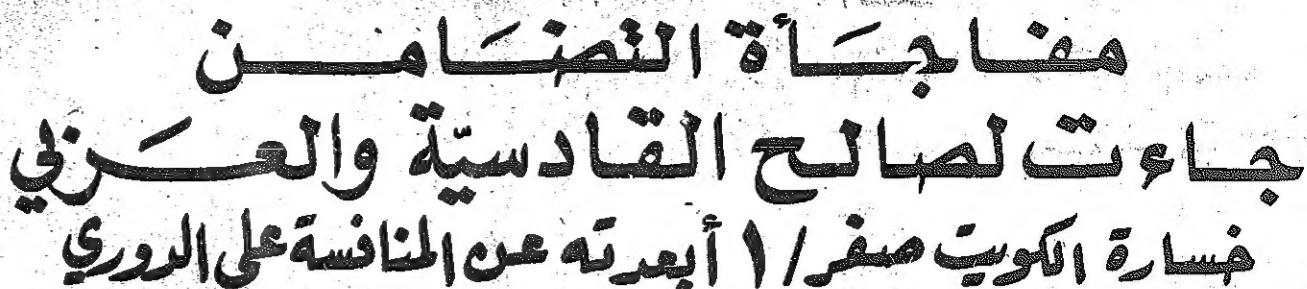 مفاجأة التضامن
جاءت لصالح القادسيّة والعربي
خسارة الكويت صفر/١ أبعدته عن المنافسة على الدوري